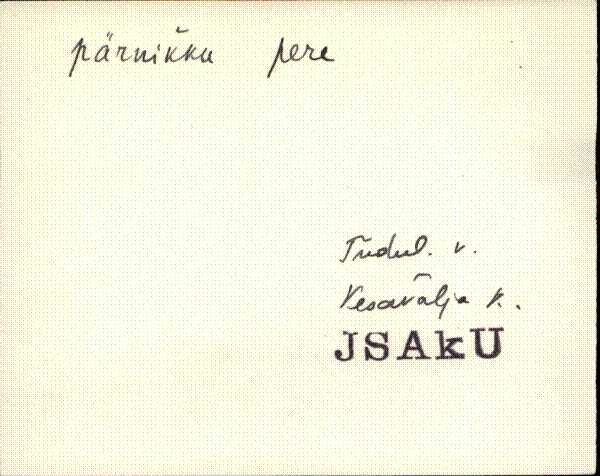 pärnikku pere
Tudul. v.
Vesavälja k.
JSAkU